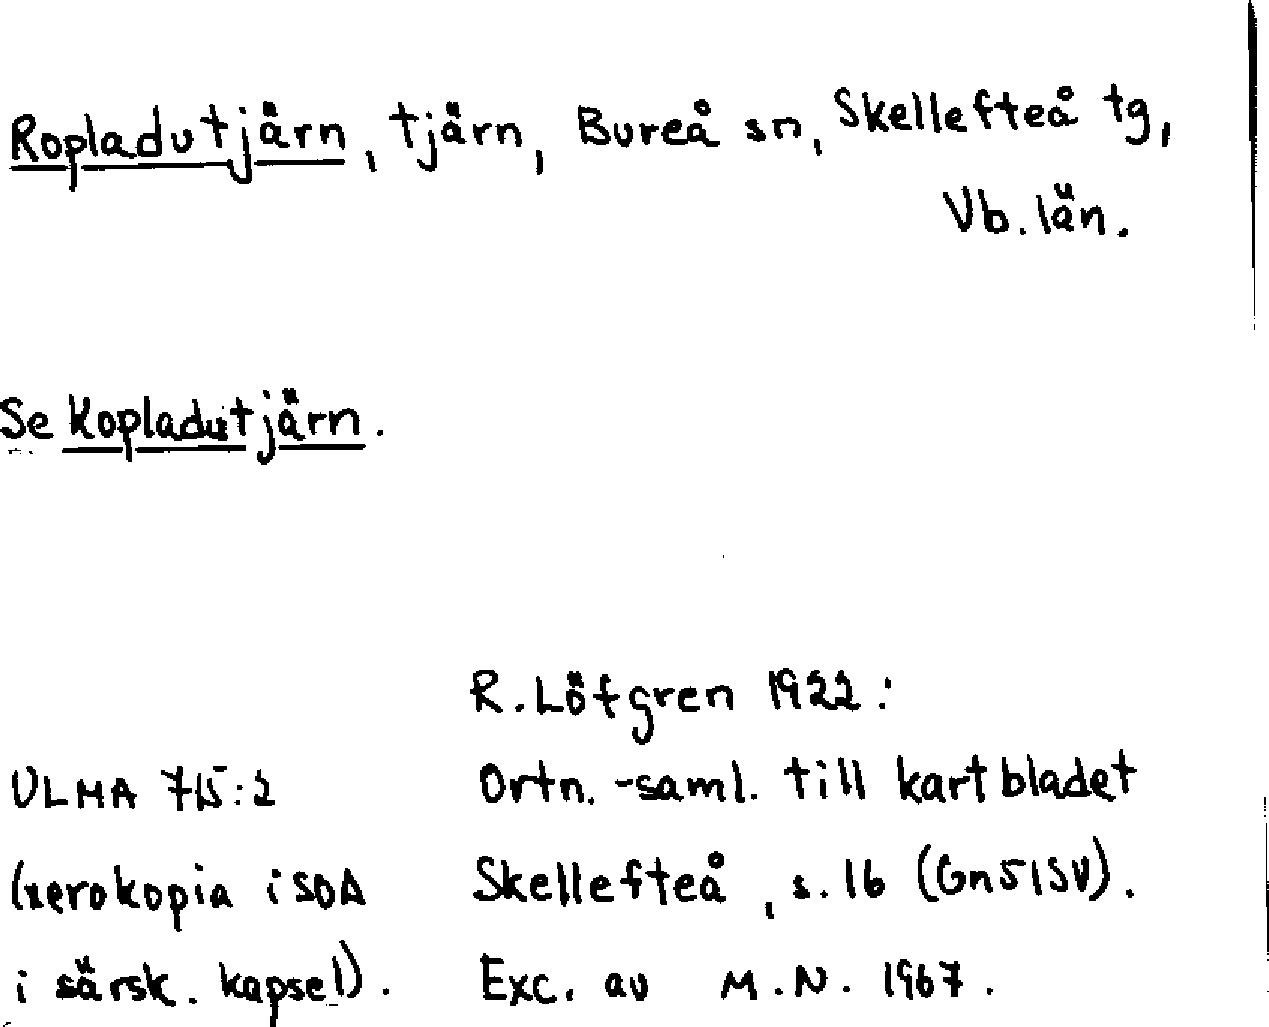 Ropladutjärn, tjärn, Bureå sn, Skellefteå tg,
Vb. län.
Se Kopladutjärn.
R. Löfgren 1922:
ULMA 715:2 Ortn.-saml. till kartbladet
(xerokopia i SOA Skellefteå, s. 16 (Gn51SV).
i särsk. kapsel). Exc. av M.N. 1967.